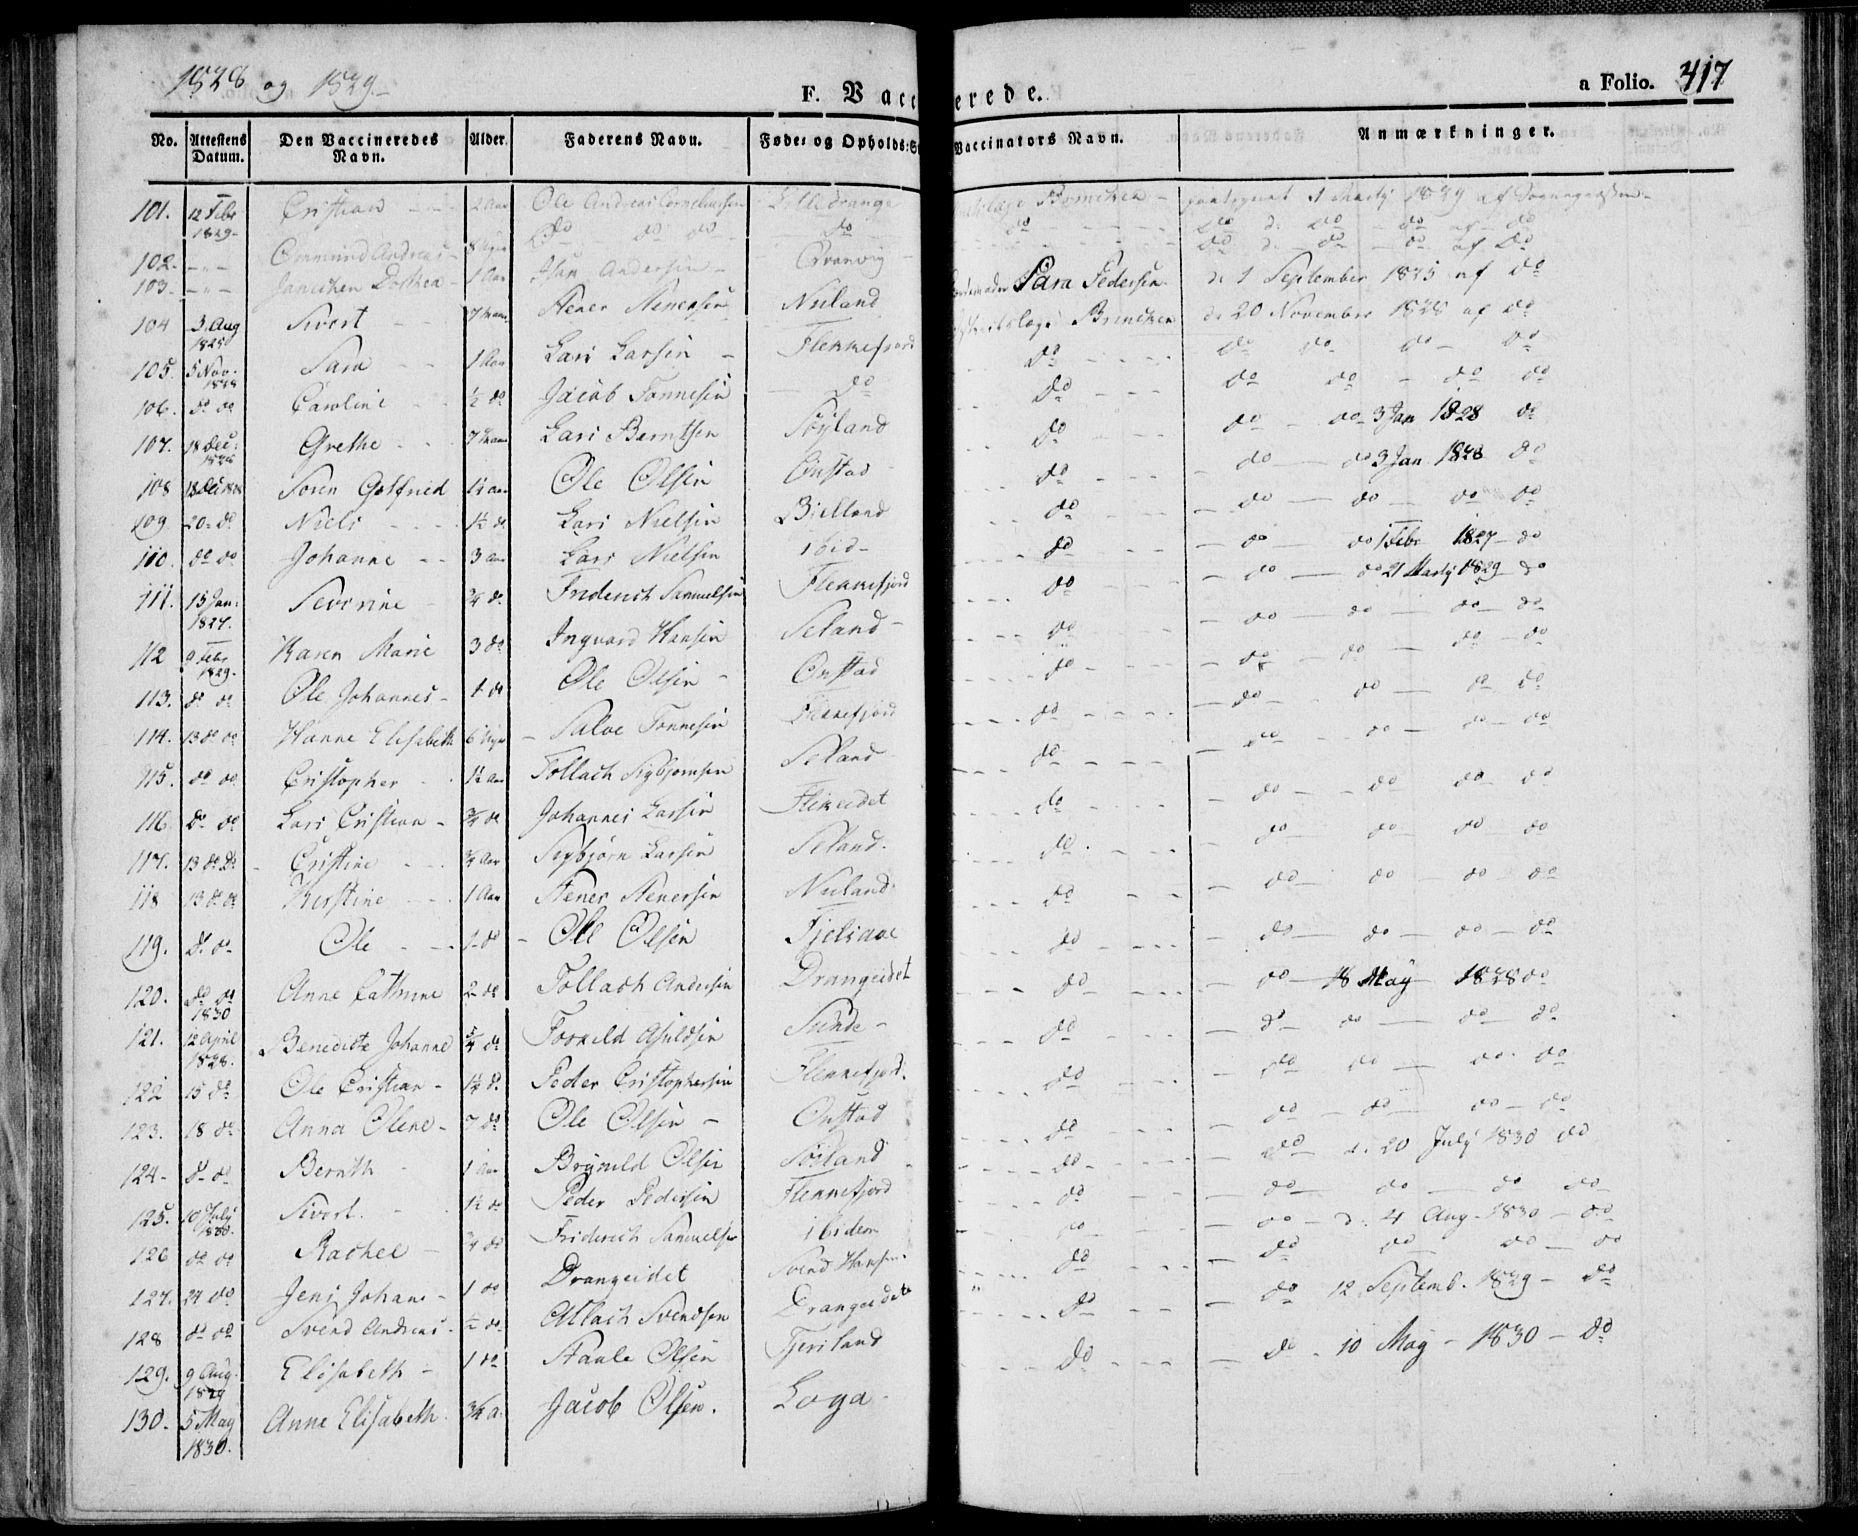 1828 og 1829
F. Vacc erede.
a Folio. 417
No. Attestens Datum. Den Vaccineredes Navn. Alder. Faderens Navn. Føde- og Opholds-St Vaccinators Navn. Anmærkninger.
101. 12 Febr 1829 Cristian 2 Aar Ole Andreas Corneliussen Lilledrange Brincken 1 Martj 1829 af
do do do do do do do do af do
102. - " - Ommund Andreas 8 Uger do do do d. do do af do
103. - " - Janicken Dorthea 1 Aar Andersen
104 3 Aug 1825 Sivert 7 Stener Stenersen Nuland Sara Pedersen d. 1 September 1825 af do
105. 5 Nov. 1828 Sara 1 Aar Lars Larsen Flekkefjord Brincken d. 20 November 1828 af do
106. do do Caroline ½ do Jacob Tønnesen do do do do do do
107. 18 Dec: 1828 Grethe 7 Lars Berntsen Søyland do do do do do
108 18 Dec 1828 Søren Gotfried 1½ Aar Ole Olsen Onstad do do do 3 Jan 1828 do
109. 20 do Niels 1½ do Lars Nielsen Bielland do do do 3 Jan 1828 do
110. do do Johanne 3 Aar Lars Nielsen ibid do do do do do
111. 15 Jan: 1827. Severine ¾ do Friderich Samuelsen Flekkefjord do do do 1 Febr 1827 do
112 9 Febr 1829. Karen Marie 3 do Ingvard Hansen Seland do do do 21 Martj 1829 do
113. do do Ole Johannes 1 do Ole Olsen Onstad do do do do do
114. 13 do do Hanne Elisabeth 6 Uger Salve Tønnesen Flekkefjord do do do do do
115. do do Cristopher 1½ Aar Tollach Sigbjørnsen Seland do do do do do
116 do do Lars Cristian ¾ do Johannes Larsen Flikeidet do do do do do
117. 13 do do Cristine ¾ Aar Sigbjørn Larsen Seland. do do do do do
118 13 do do Kirstine 1 Aar Stener Stenersen Nuland do do do do do
119. do do Ole 1 do Ole Olsen Fjelsaae do do do do do
120. do do 1830 Anne Cathrine 2 do Tollach Andersen Drangeidet do do do do do
121. 12 April 1828. Benedicte Johanne ¾ do Torkild Asuldsen Sunde do do 18 May 1828 do
122 15 do Ole Cristian 1¼ do Peder Cristophersen Flekkefjord. do do do do do
123. 18 do Anna Olene 7 do Ole Olsen Onstad do do do do do
124. do do Bernth 1 Aar Brynild Olsen Søiland do do do do do
125. 10 July 1830. Sivert 1½ do Peder Pedersen Flekkefjord do do d. 20 July 1830 do
126 do do Rachel ¾ do Friderich Samuelsen ibidem do do do do do
127. 24 do Jens Johan 1 do Drangeidet Svend Hansen do do d. 4 Aug. 1830 do
128 do do Svend Andreas ½ do Atlach Svendsen Drangeidet do do do do do
129. 9 Aug. 1829 Elisabeth 1 do Staale Olsen do do 12 Septemb. 1829 do
130. 5 May 1830. Anne Elisabeth ¾ A. Jacob Olsen. Loga do do 10 May 1830 do